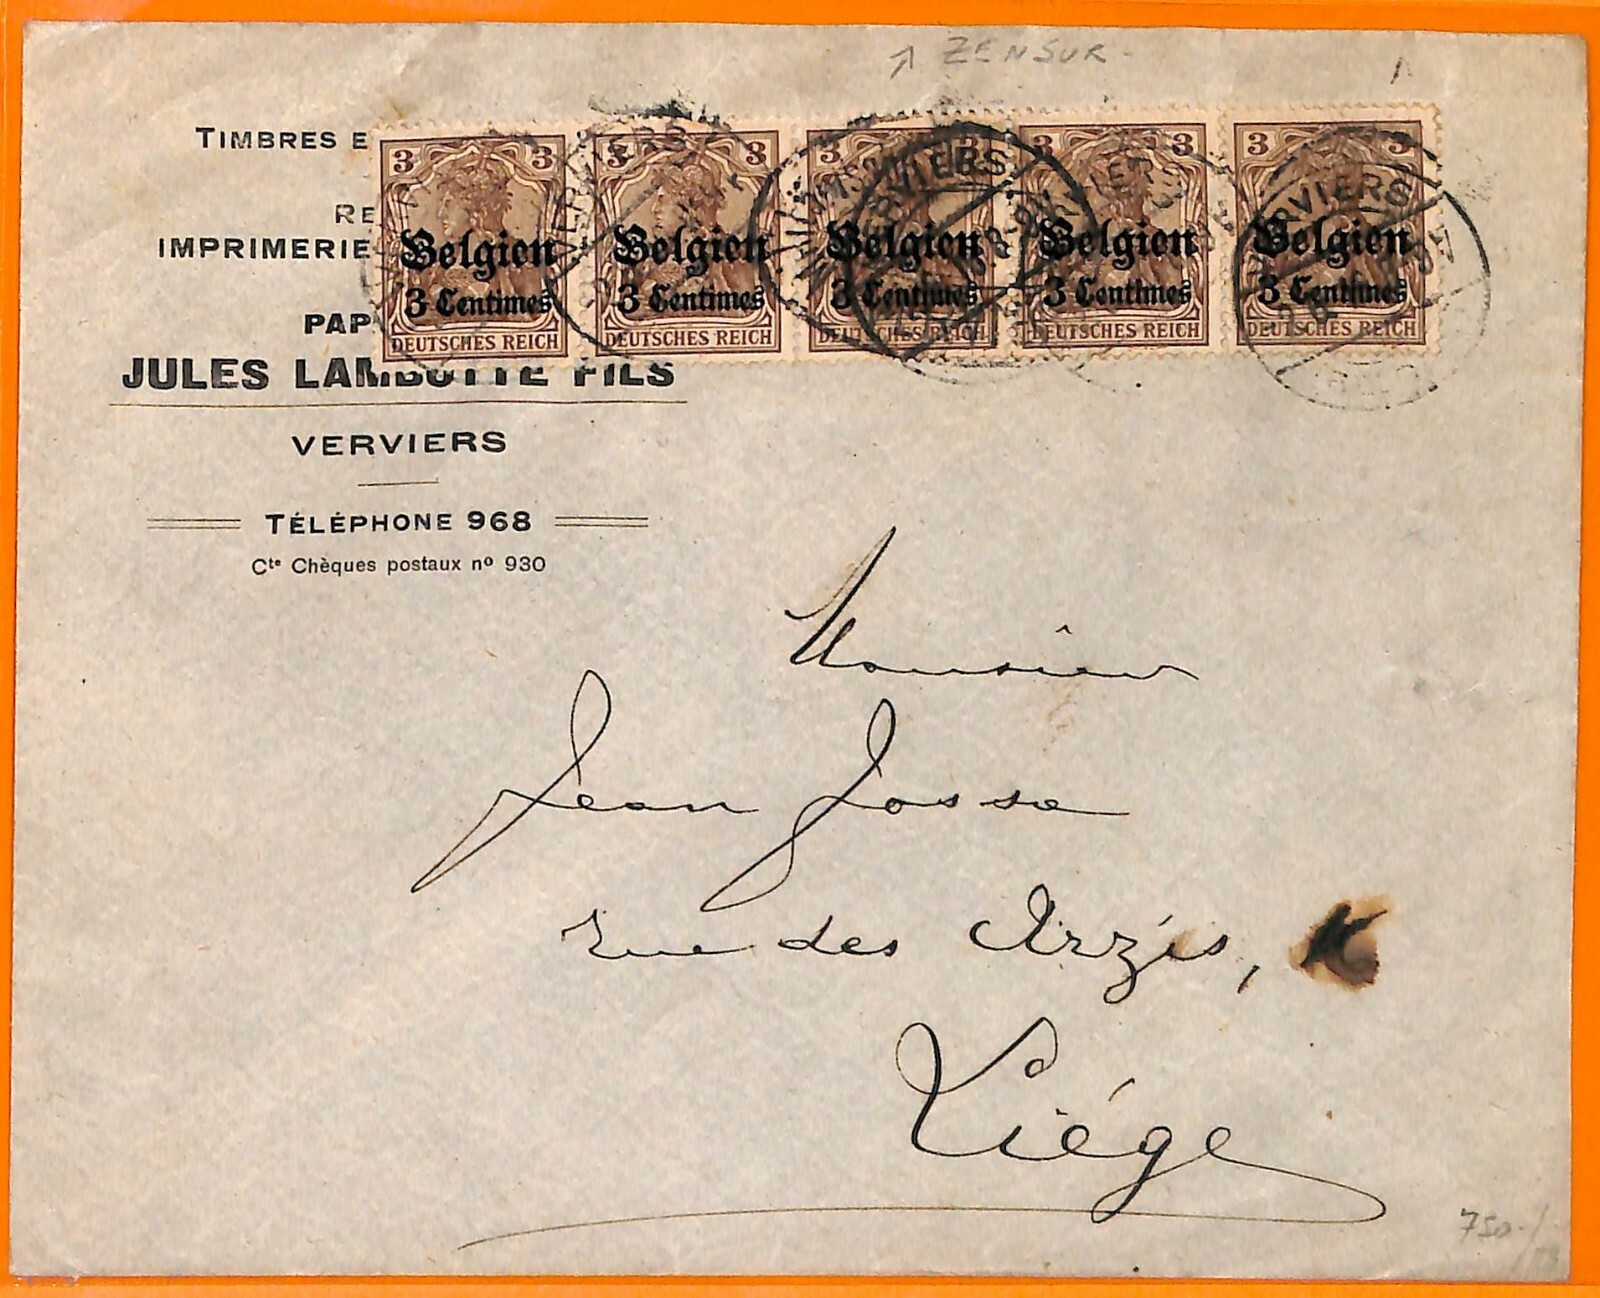 ZENSUR -
TIMBRES E
RE
IMPRIMERIE
PAP
JULES LAMBOTTE FILS
VERVIERS
TÉLÉPHONE 968
Cte Chèques postaux nº 930
3 3 3 3 3 3 3 3 3 3
Belgien Belgien Belgien Belgien Belgien
3 Centimes 3 Centimes 3 Centimes 3 Centimes 3 Centimes
DEUTSCHES REICH DEUTSCHES REICH DEUTSCHES REICH DEUTSCHES REICH DEUTSCHES REICH
VERVIERS VERVIERS VERVIERS VERVIERS
Monsieur
Jean Josse
Rue des Arzis,
Liége
750.-